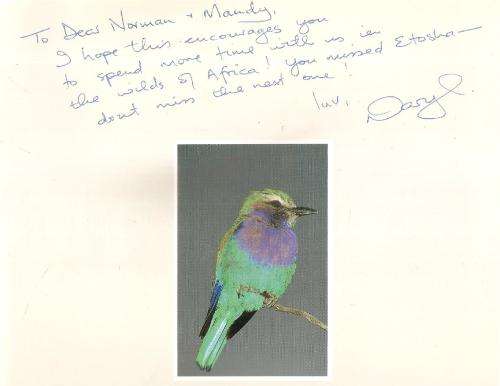 To Dear Norman + Mandy,
I hope this encourages you
to spend more time with us in
the wilds of Africa! You missed Etosha—
dont miss the next one!
luv,
Daryl.